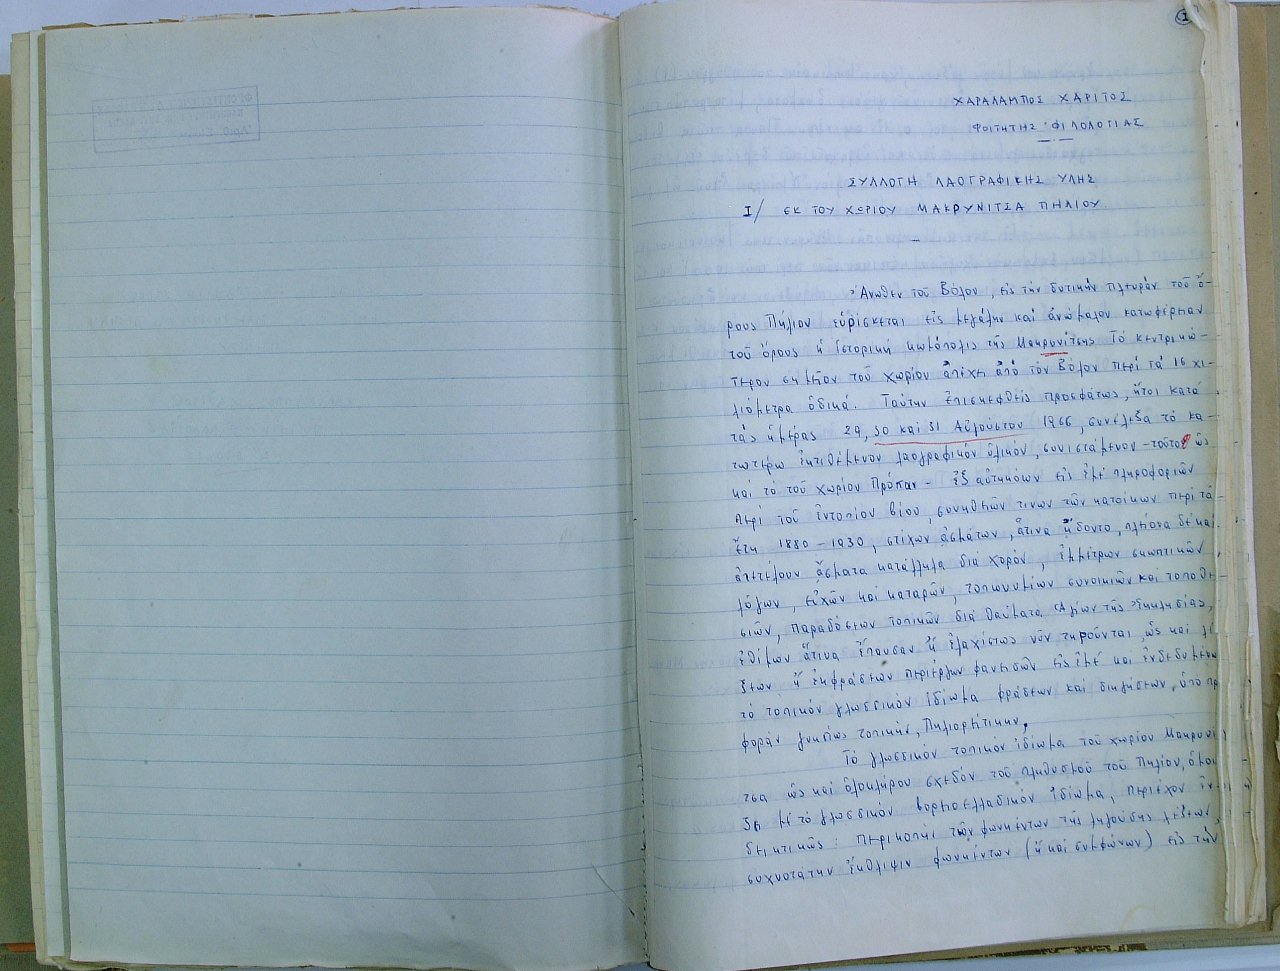 1
ΧΑΡΑΛΑΜΠΟΣ ΧΑΡΙΤΟΣ
ΦΟΙΤΗΤΗΣ ΦΙΛΟΛΟΓΙΑΣ
ΣΥΛΛΟΓΗ ΛΑΟΓΡΑΦΙΚΗΣ ΥΛΗΣ
Ι/ ΕΚ ΤΟΥ ΧΩΡΙΟΥ ΜΑΚΡΥΝΙΤΣΑ ΠΗΛΙΟΥ
Ἄνωθεν τοῦ Βόλου, εἰς τὴν δυτικὴν πλευρὰν τοῦ ὄ-
ρους Πήλιον εὑρίσκεται εἰς μεγάλην καὶ ἀνώμαλον κατωφέρειαν
τοῦ ὄρους ἡ ἱστορικὴ κωμόπολις τῆς Μακρυνίτσης. Τὸ κεντρικώ-
τερον σημεῖον τοῦ χωρίου ἀπέχει ἀπὸ τὸν Βόλον περὶ τὰ 16 χι-
λιόμετρα ὁδικά. Ταύτην ἐπισκεφθεὶς προσφάτως, ἤτοι κατὰ
τὰς ἡμέρας 29, 30 καὶ 31 Αὐγούστου 1966, συνέλεξα τὸ κα-
τωτέρω ἐκτιθέμενον λαογραφικὸν ὑλικόν, συνιστάμενον - τοῦτο ὡς
καὶ τὸ τοῦ χωρίου Πρόπαν - ἐξ αὐτηκόων εἰς ἐμὲ πληροφοριῶν
περὶ τοῦ ἐντοπίου βίου, συνηθειῶν τινων τῶν κατοίκων περὶ τὰ
ἔτη 1880-1930, στίχων ᾀσμάτων, ἅτινα ᾔδοντο, πλείονα δὲ καὶ
ἀπετέλουν ᾄσματα κατάλληλα διὰ χορόν, ἐμμέτρων σκωπτικῶν
λόγων, εὐχῶν καὶ καταρῶν, τοπωνυμίων συνοικιῶν καὶ τοποθε-
σιῶν, παραδόσεων τοπικῶν διὰ θαύματα Ἁγίων τῆς Ἐκκλησίας,
ἐθίμων ἅτινα ἔπαυσαν ἢ ἐλαχίστως νῦν τηροῦνται, ὡς καὶ λέ
ξεων ἢ ἐκφράσεων περιέργων φανεισῶν εἰς ἐμὲ καὶ ἐνδεδυμένω
τὸ τοπικὸν γλωσσικὸν ἰδίωμα φράσεων καὶ διηγήσεων, ὑπὸ προ
φορὰν γνησίως τοπικήν, Πηλιορείτικην.
Τὸ γλωσσικὸν τοπικὸν ἰδίωμα τοῦ χωρίου Μακρυνί
τσα ὡς καὶ ὁλοκλήρου σχεδὸν τοῦ πληθυσμοῦ τοῦ Πηλίου, ὁμοι
ζει μὲ τὸ γλωσσικὸν βορειοελλαδικὸν ἰδίωμα, περιέχον
δεικτικῶς: περικοπὴν τῶν φωνηέντων τῆς ληγούσης λέξεων,
συχνοτάτην ἔκθλιψιν φωνηέντων (ἢ καὶ συμφώνων) εἰς τὴν